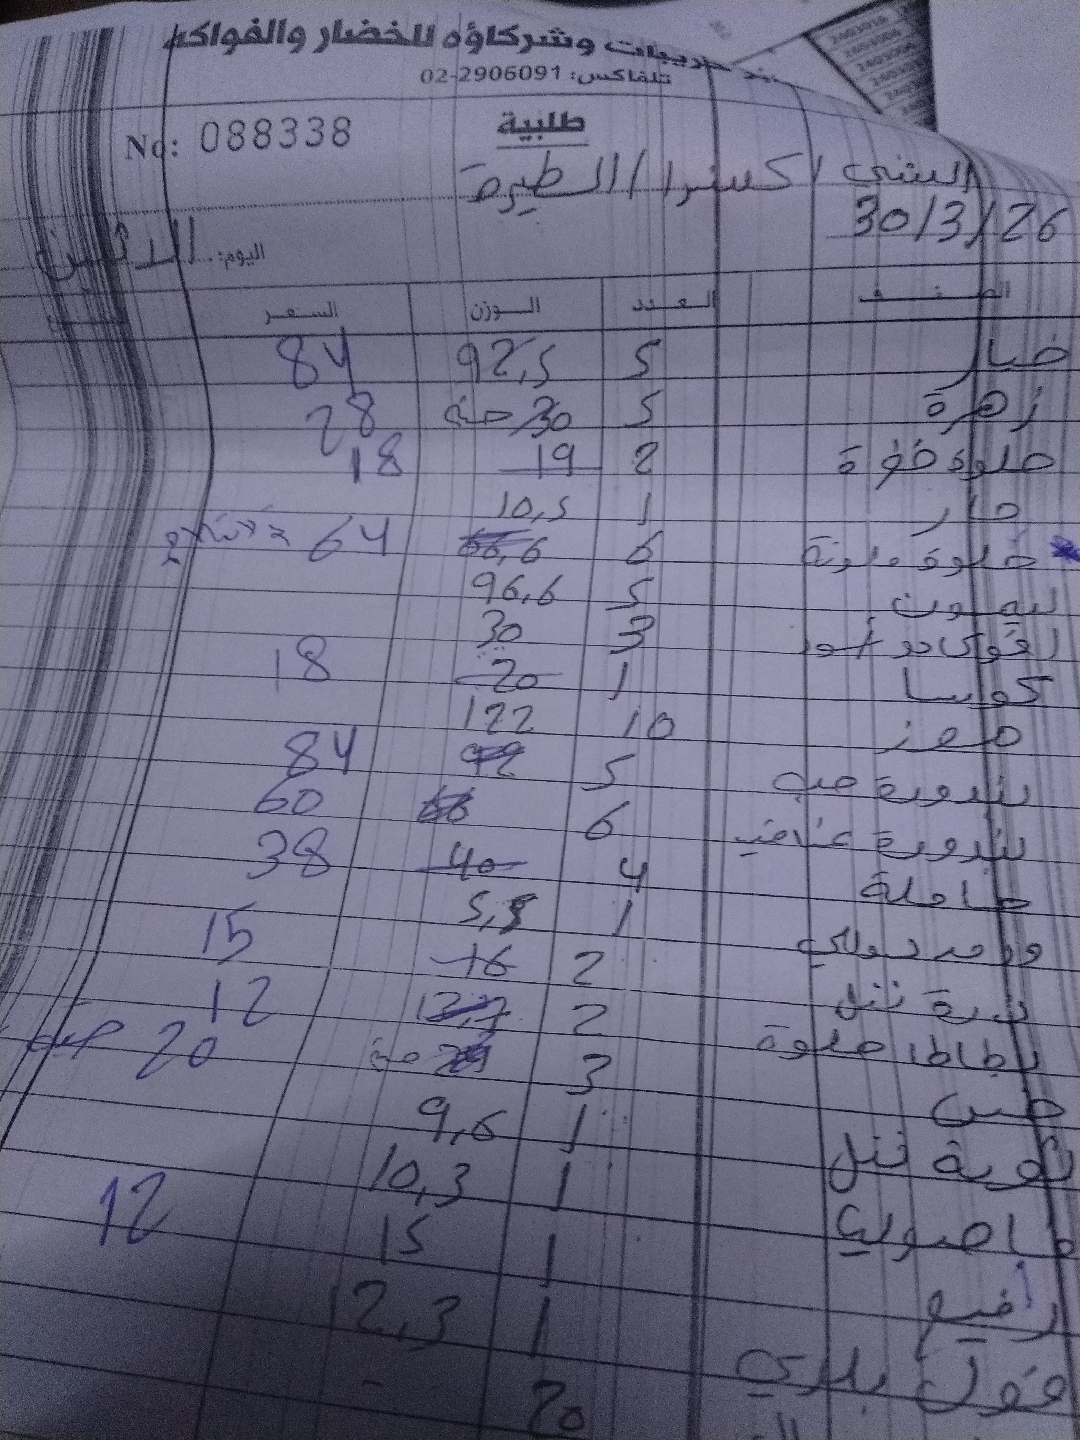 وشركاؤه للخضار والفواكه
تلفاكس: 02-2906091
طلبية
No: 088338
اكسترا / الطيرة
30/3/26
اليوم: الاثنين
الصنف العدد الوزن السعر
خيار 5 92,5 84
زهرة 5 30 حبة 28
حلوة 2 19 18
حار 1 10,5
حلوة ملونة 6 66,6 64
ليمون 5 96,6
افوكادو 3 30
كوسا 1 20 18
موز 10 122
بندورة حب 5 92 84
بندورة عناقيد 6 60
4 40 38
1 5,5
ذرة نخل 2 16 15
بطاطا حلوة 2 12
خس 3 حبة 20
1 9,6
فاصوليا 1 10,3
1 15 12
فول بلدي 1 12,3
20 -